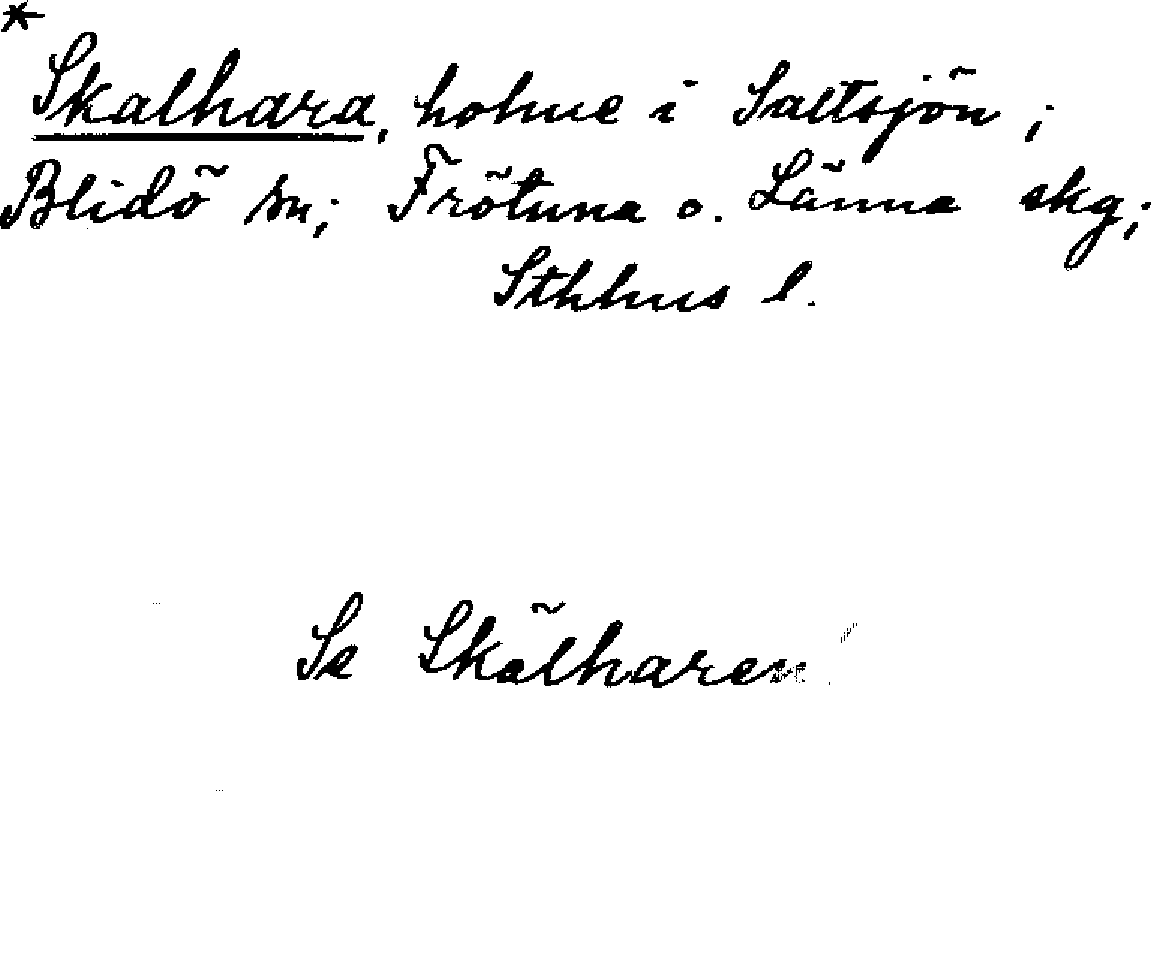 *
Skalhara, holme i Saltsjön;
Blidö sn; Frötuna o. Länna skg;
Sthlms l.
Se Skälharen